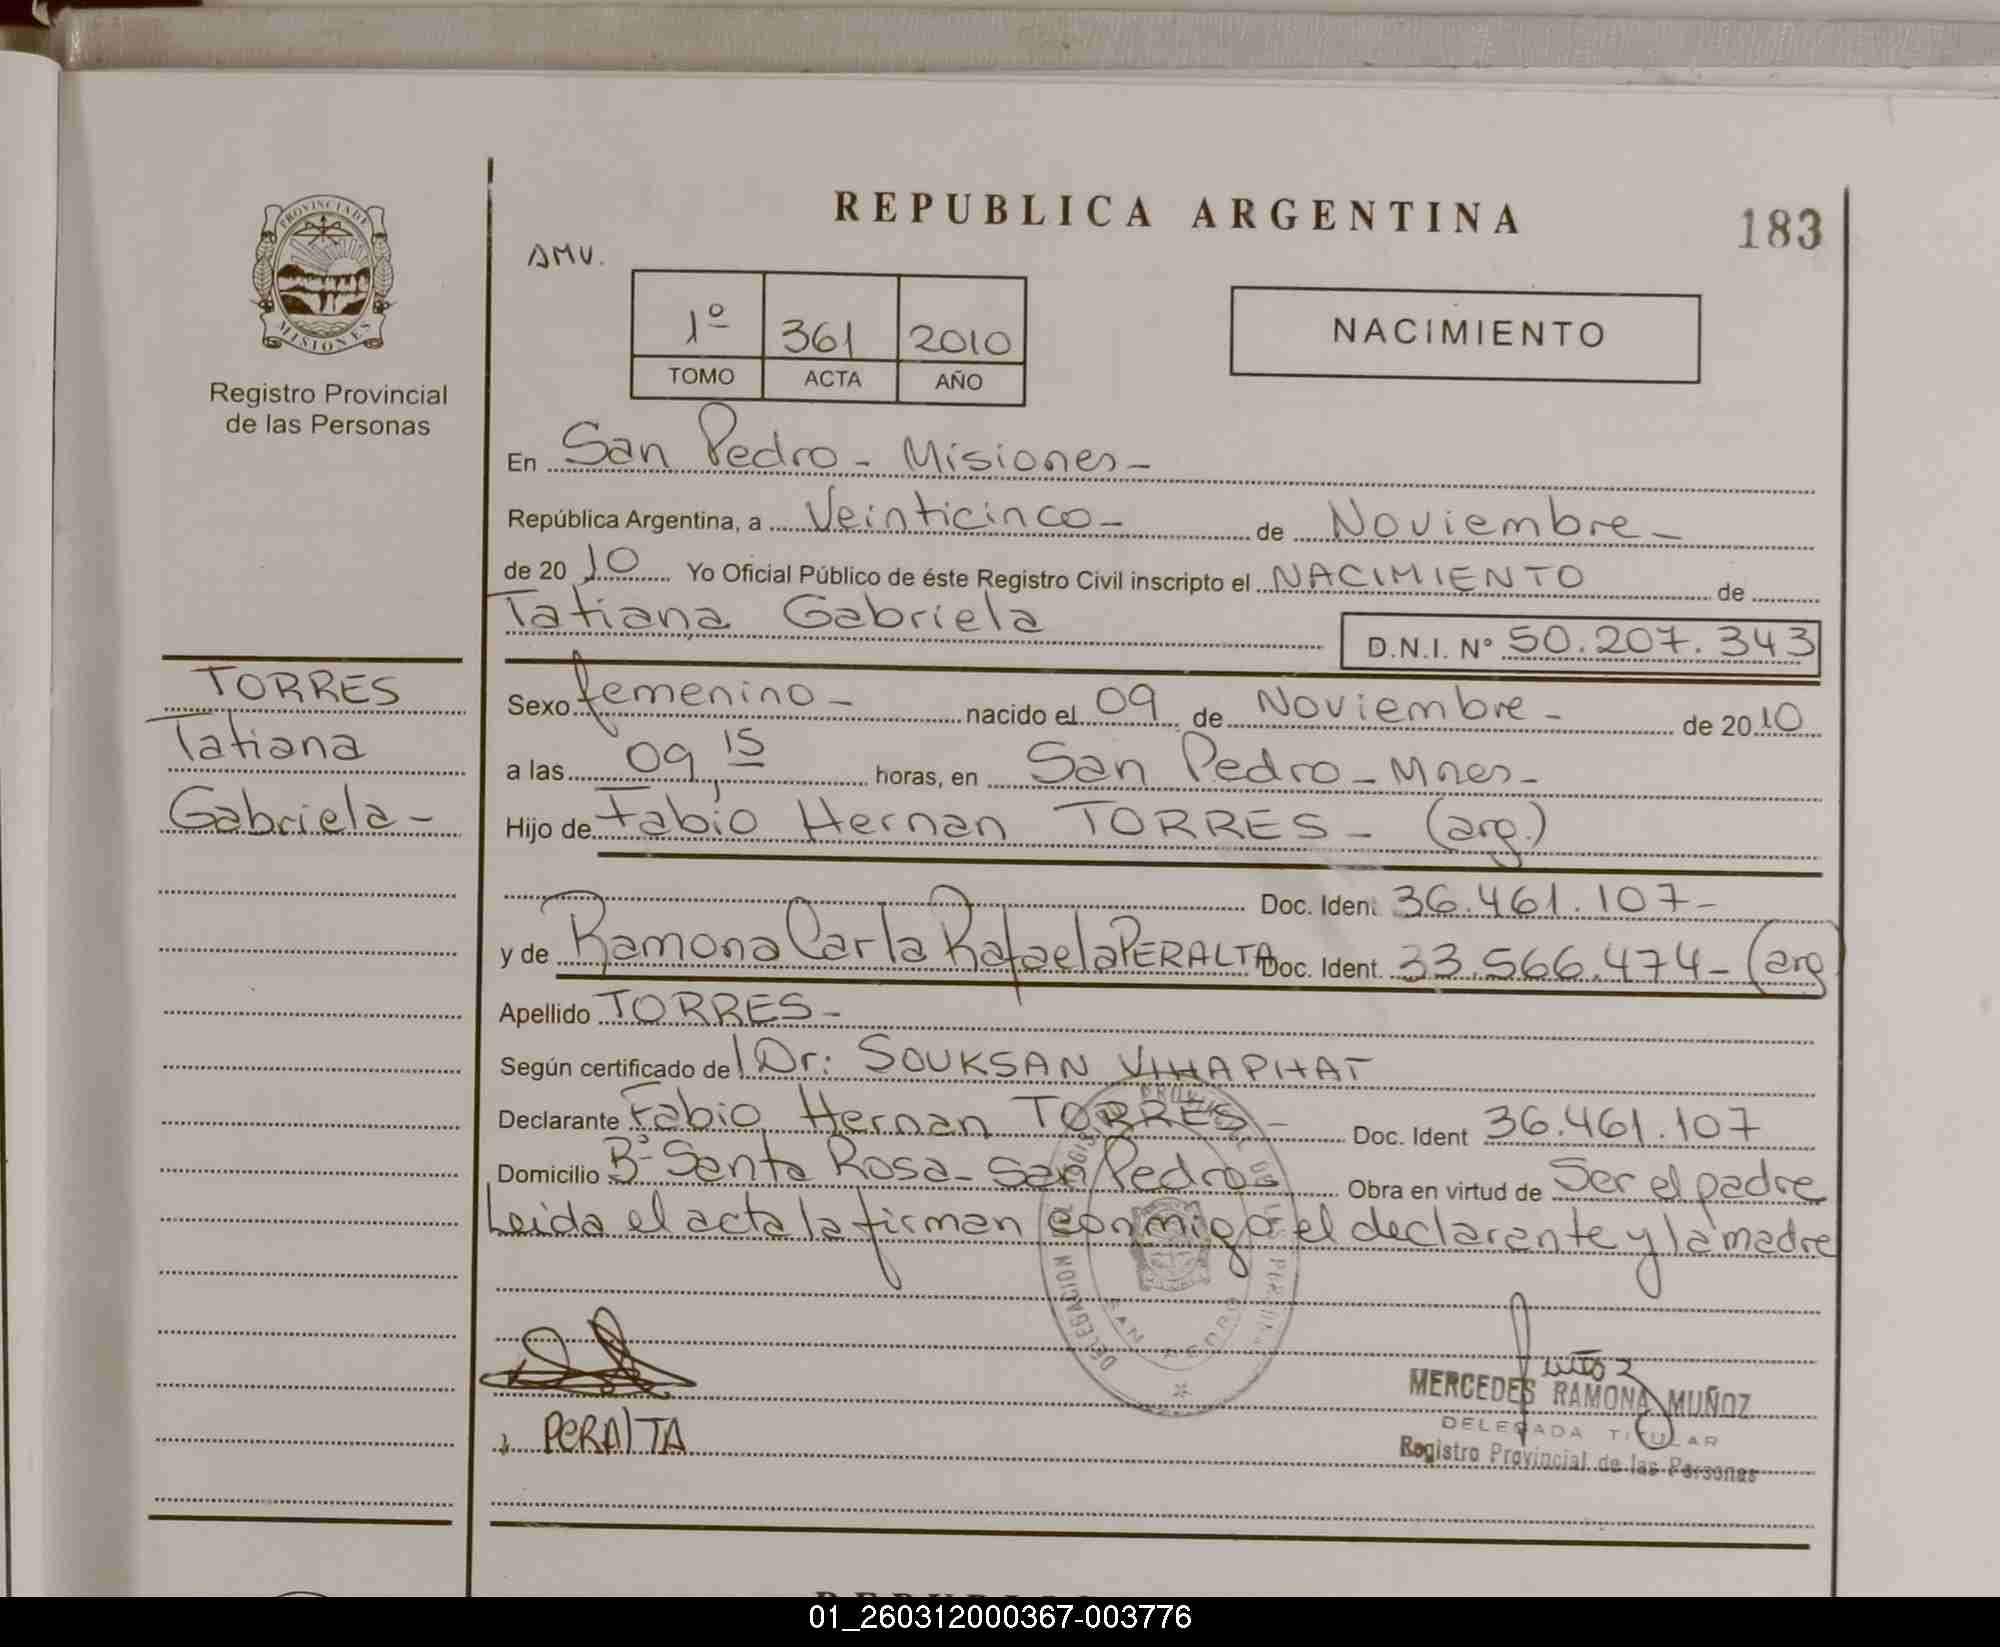 REPUBLICA ARGENTINA
183
AMV.
PROVINCIA DE
MISIONES
Registro Provincial
de las Personas
1º 361 2010
TOMO ACTA AÑO
NACIMIENTO
En San Pedro - Misiones -
República Argentina, a Veinticinco - de Noviembre -
de 20 10 Yo Oficial Público de éste Registro Civil inscripto el NACIMIENTO de
Tatiana Gabriela D.N.I. Nº 50.207.343
TORRES
Tatiana
Gabriela -
Sexo femenino - nacido el 09 de Noviembre - de 20 10
a las 09,15 horas, en San Pedro - Mnes -
Hijo de Fabio Hernan TORRES - (arg.)
Doc. Ident 36.461.107 -
y de Ramona Carla Rafaela PERALTA Doc. Ident. 33.566.474 - (arg
Apellido TORRES -
Según certificado de l Dr: SOUKSAN
Declarante Fabio Hernan TORRES - Doc. Ident 36.461.107
Domicilio Bº Santa Rosa - San Pedro Obra en virtud de Ser el padre
Leida el acta la firman conmigo el declarante y la madre
DELEGACION
SAN PEDRO
PERALTA
MERCEDES RAMONA MUÑOZ
DELEGADA TITULAR
Registro Provincial de las Personas
01_260312000367-003776